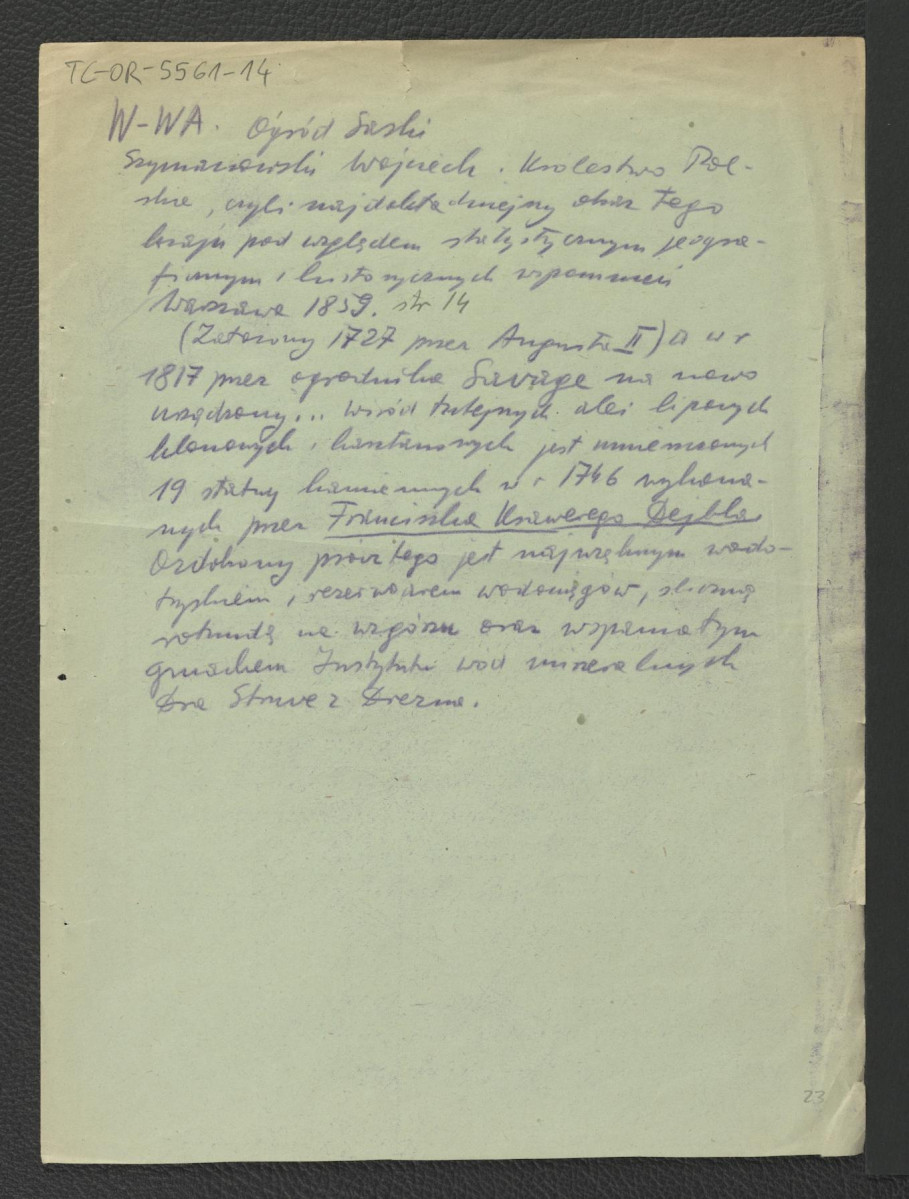 TC-OR-5561-14
W-WA. Ogród Saski
Szymanowski Wojciech. Krolestwo Pol-
skie, czyli najdokładniejszy obraz tego
kraju pod względem statystycznym jeogra-
ficznym i historycznych wspomnień
Warszawa 1859. str 14
(Założony 1727 przez Augusta II) a w r
1817 przez ogrodnika Savage na nowo
urządzony... wśród tutejszych alei lipowych
klonowych i kasztanowych jest umieszczonych
19 statuy kamiennych w r 1746 wykona-
nych przez Franciszka Ksawerego Dejbla
Ozdobiony prócz tego jest wodo-
tryskiem, rezerwoarem wodociągów, śliczną
rotundą na wzgórzu oraz wspaniałym
gmachem Instytutu wód mineralnych
Dra Struve z Drezna.
23